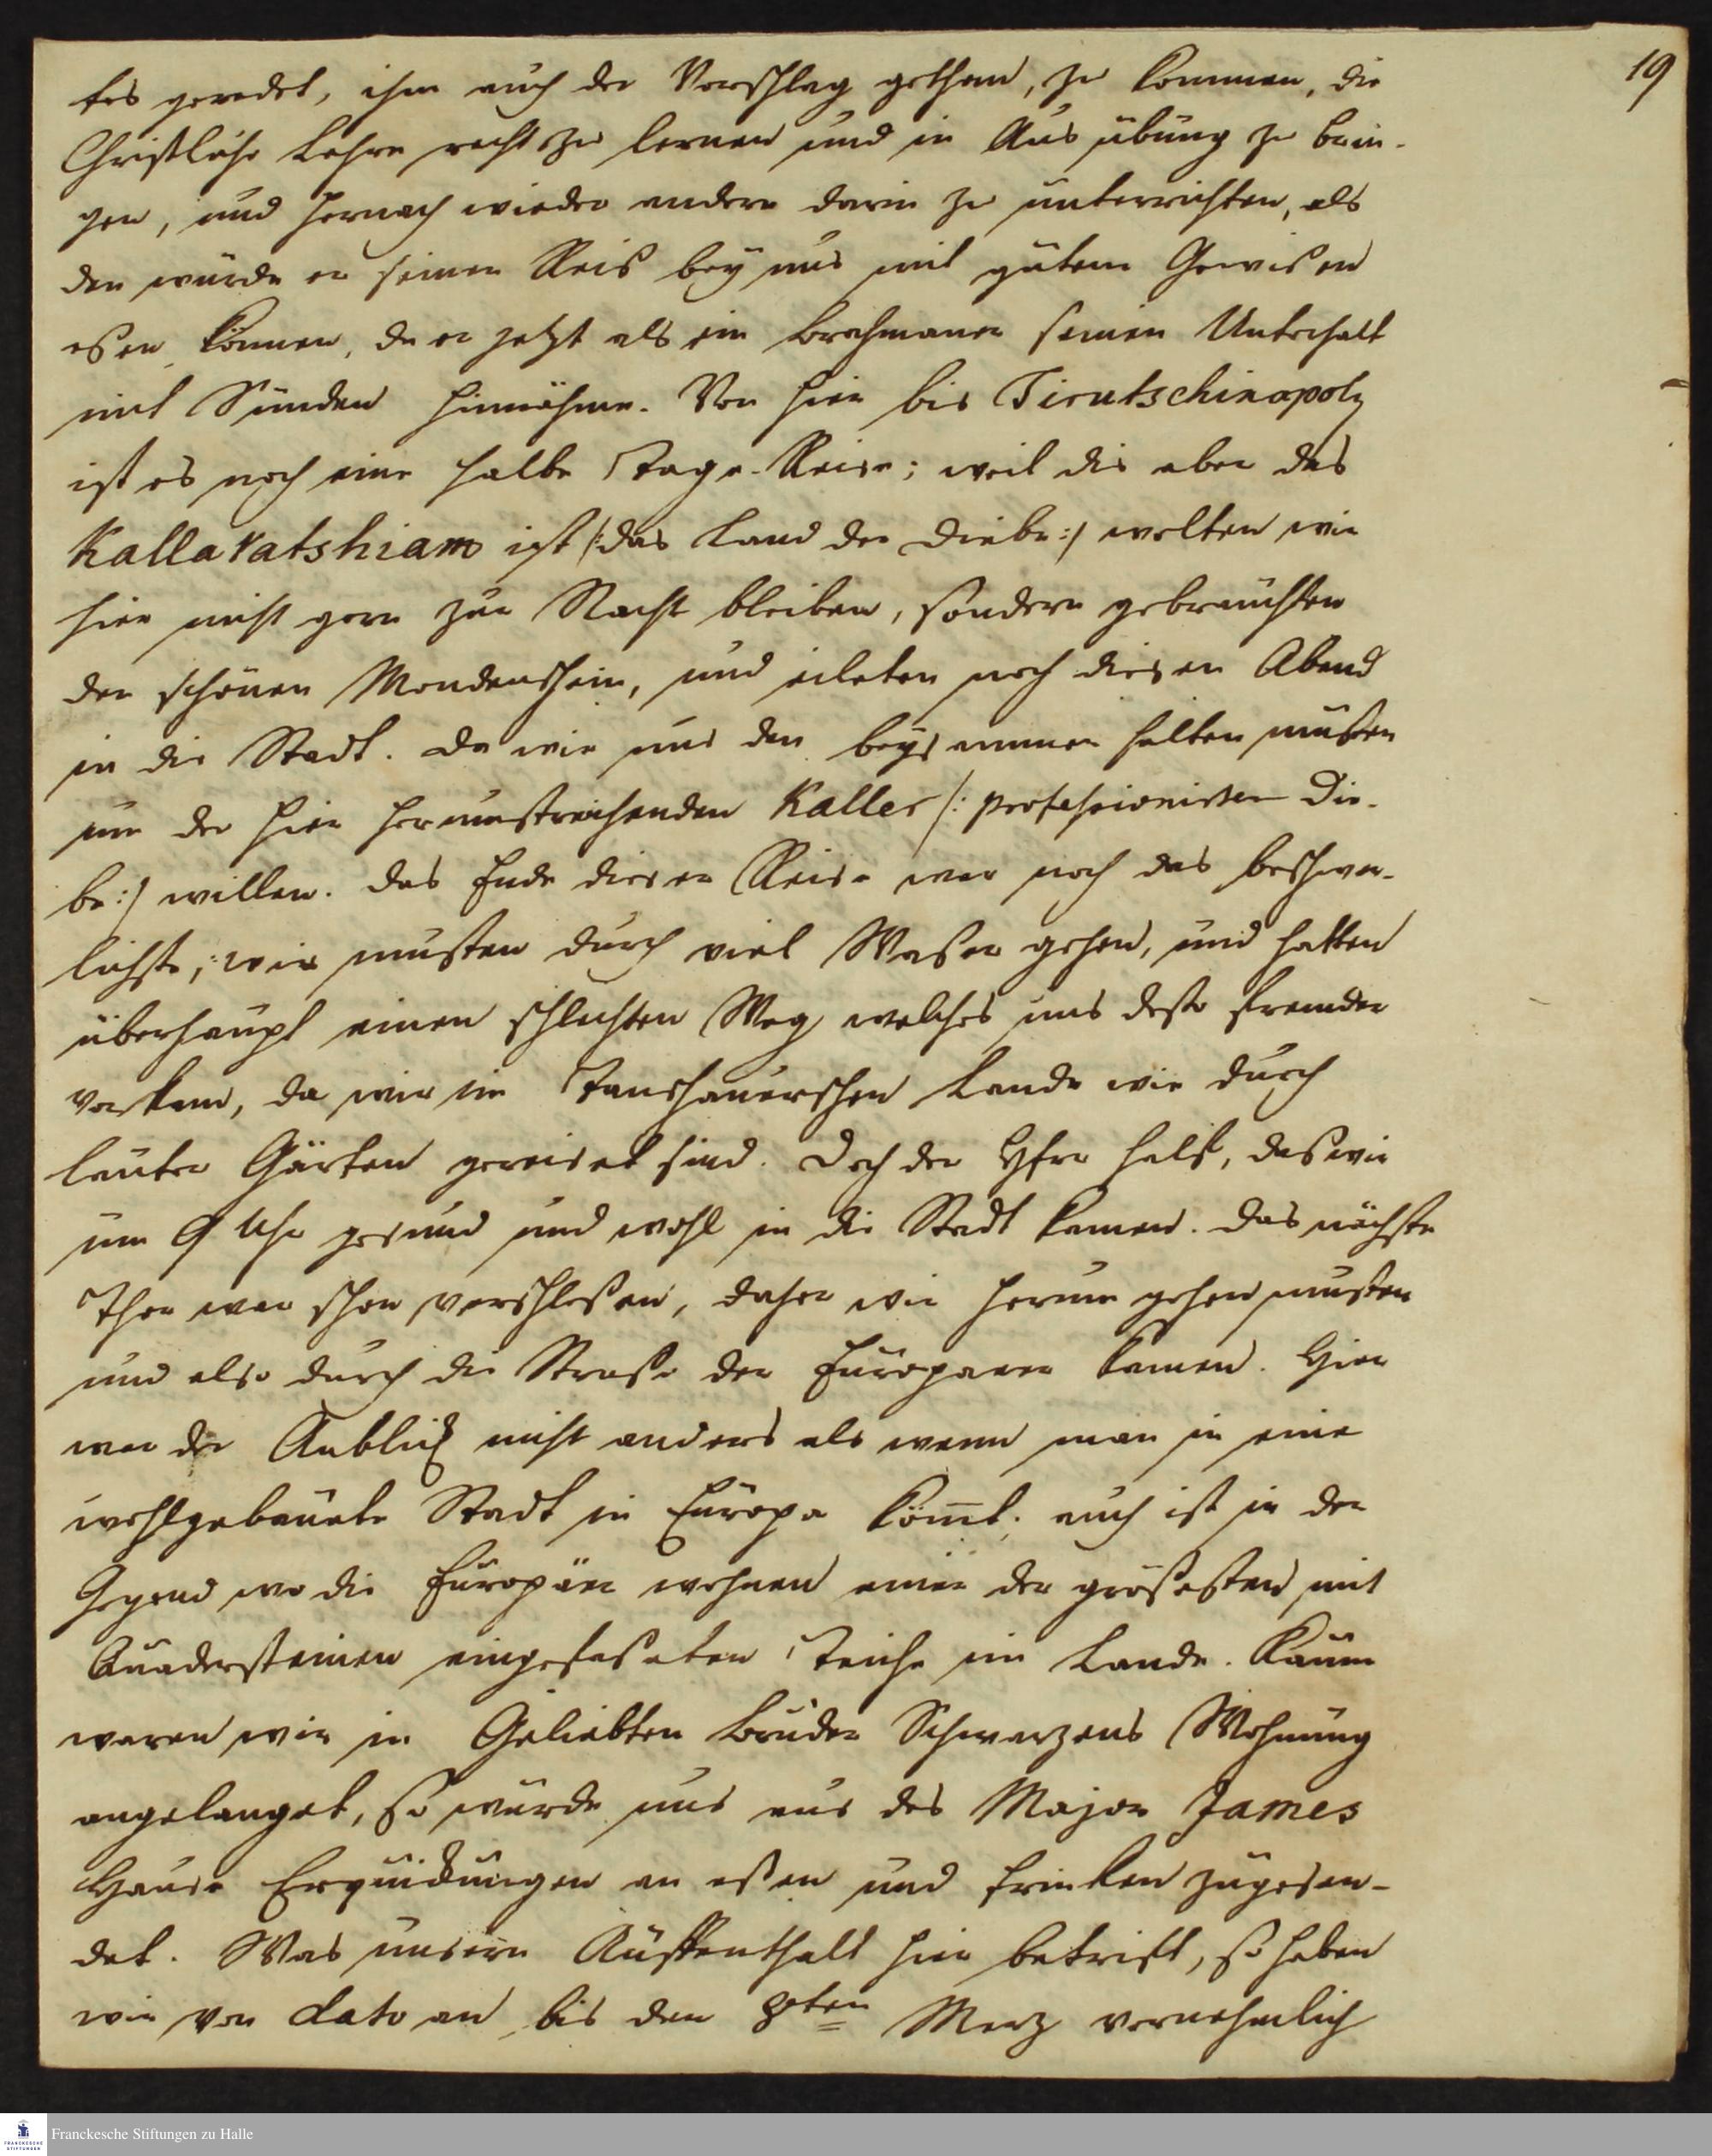 19
tes geredet, ihm auch der Vorschlag gethan, zu kommen, die
Christliche Lehre recht zu lernen und in Ausübung zu brin-
gen, und hernach wieder andere darin zu unterrichten, als
den würde er seinen Reis bey uns mit gutem Gewißen
eßen können, da er jetzt als ein Brahmaner seinen Unterhalt
mit Sünden hinnähme. Von hier bis Tirutschinapoly
ist es noch eine halbe Tage-Reise; weil dis aber das
Kallaratshiam ist /: das Land der Diebe :/ wolten wir
hier nicht gern zur Nacht bleiben, sondern gebrauchten
den schönen Mondenschein, und eileten noch diesen Abend
in die Stadt. Da wir uns den beysammen halten musten
um der hier herumstreichenden Kaller /: professionirten Die-
be :/ willen. Das Ende dieser Reise war noch das beschwer-
lichste, wir musten durch viel Waßer gehen, und hatten
überhaupt einen schlechten Weg welches uns desto fremder
vorkam, da wir im Tanschaurschen Lande wie durch
lauter Gärten gereiset sind. Doch der Herr half, das wir
um 9 Uhr gesund und wohl in die Stadt kamen. Das nächste
Thor war schon verschloßen, daher wir herum gehen musten
und also durch die Straße der Europaeer kamen. Hier
war der Anblick nicht anders als wenn man in eine
wohlgebauete Stadt in Europa kömt; auch ist in der
Gegend wo die Europäer wohnen einer der größesten mit
Quadersteinen eingefaßeten Teiche im Lande. Kaum
waren wir in Geliebten Bruder Schwarzens Wohnung
angelanget, so wurde uns aus des Major James
Hause Erquickungen an eßen und trinken zugesen-
det. Was unsern Auffenthalt hier betrift, so haben
wir von dato an bis den 8ten Merz vornehmlich
Franckesche Stiftungen zu Halle